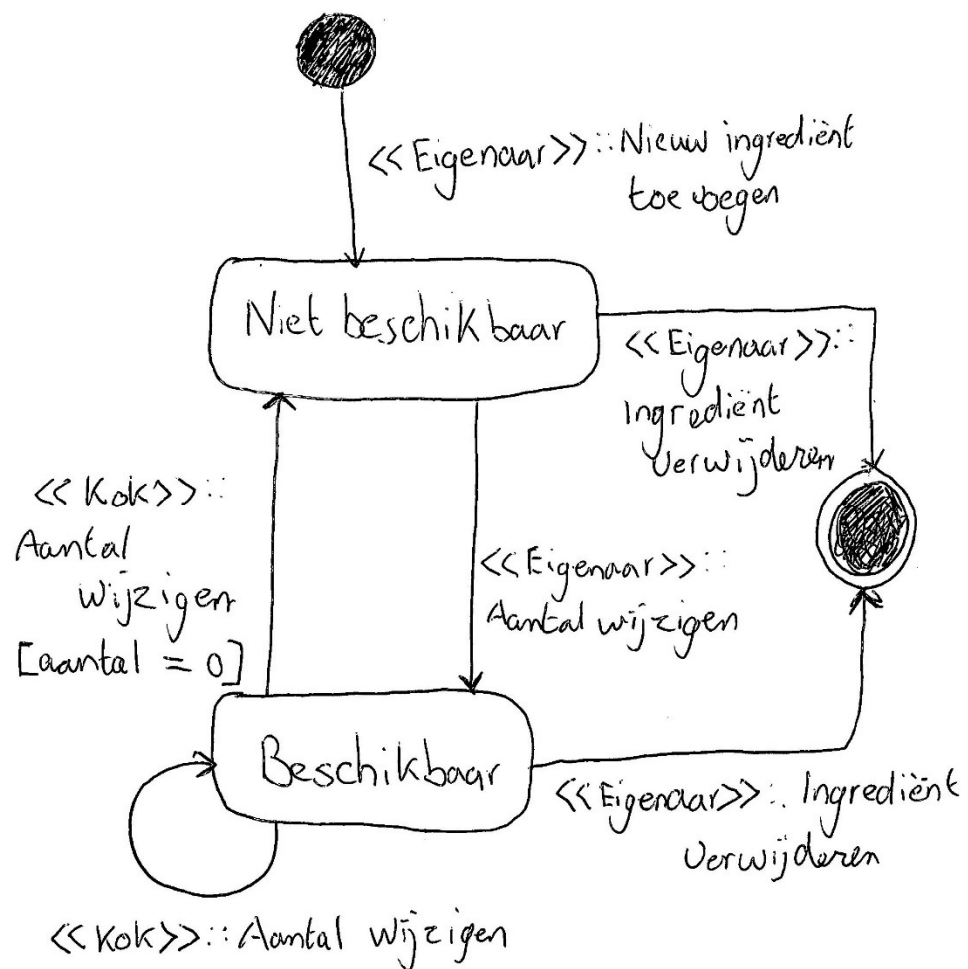 <<Eigenaar>>::Nieuw ingrediënt
toevoegen
Niet beschikbaar
<<Eigenaar>>::
Ingrediënt
verwijderen
<<Kok>>::
Aantal
wijzigen
[aantal = 0]
<<Eigenaar>>::
Aantal wijzigen
Beschikbaar
<<Eigenaar>>:: Ingrediënt
verwijderen
<<Kok>>::Aantal wijzigen